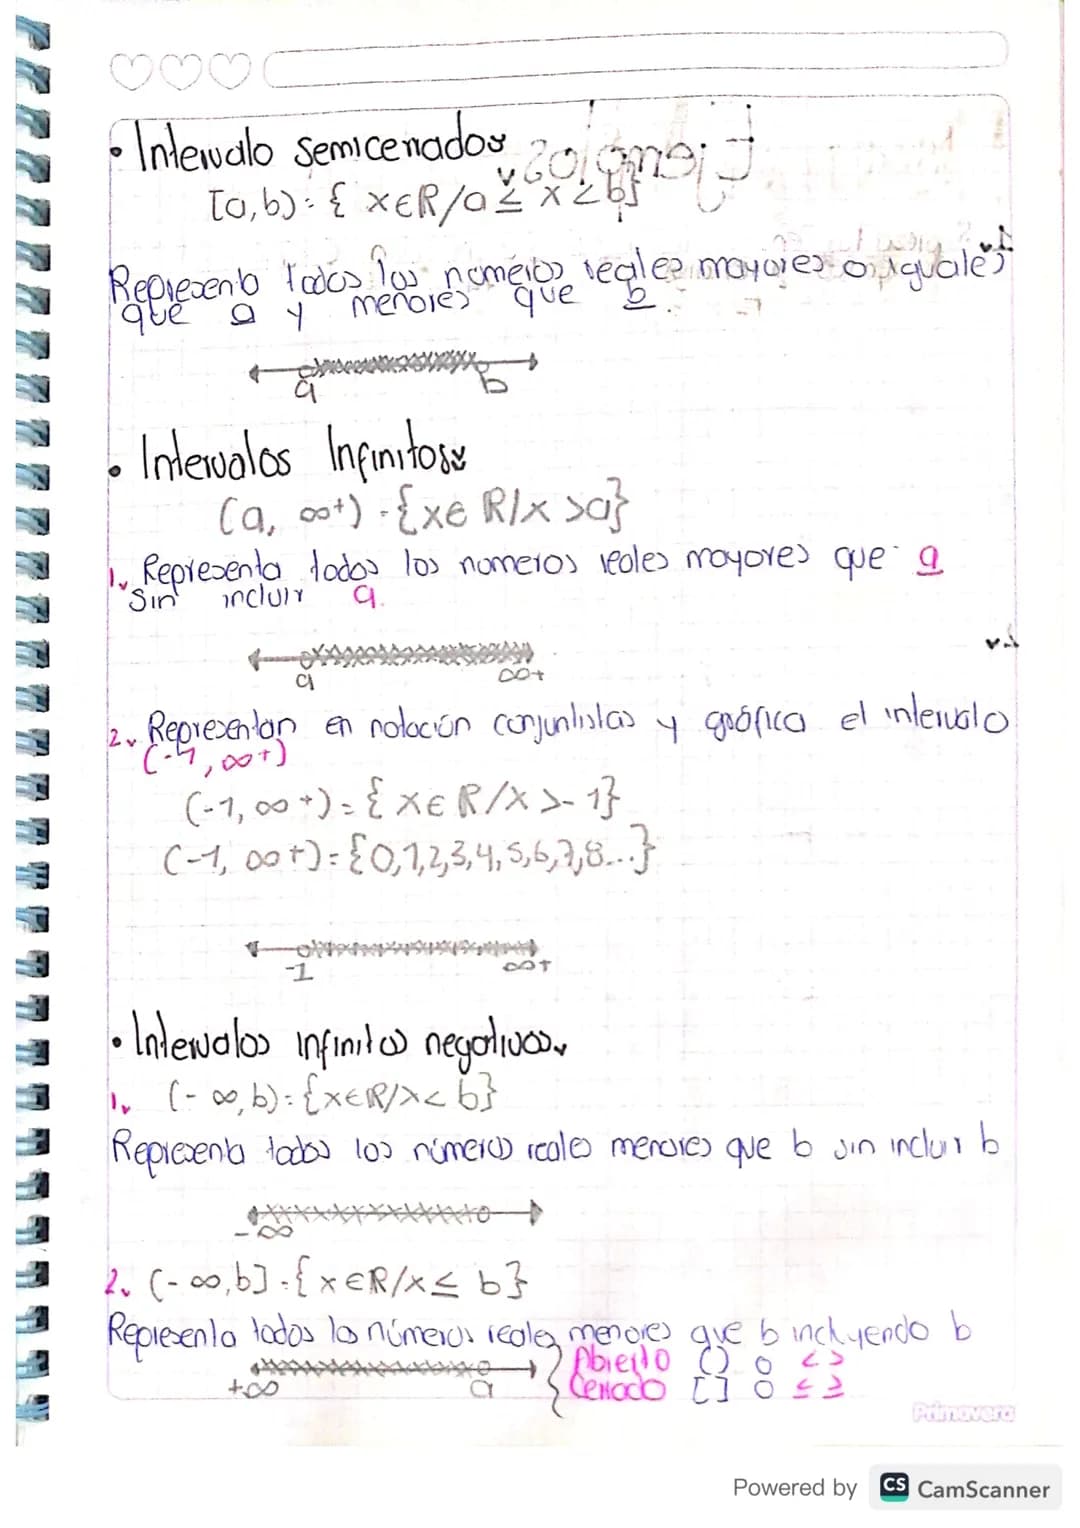 • Intervalo semicerrados
[a,b) = { x∈R/a ≤ x < b}
Representa todos los numeros reales mayores o iguales
que a y menores que b.
a b
• Intervalos Infinitos
(a, ∞+) = {x∈ R/x >a}
1. Representa todos los numeros reales mayores que a
Sin incluir a.
a ∞+
2. Representan en notación conjuntistas y gráfica el intervalo
(-1, ∞+)
(-1, ∞+) = { x∈ R/x >-1}
(-1, ∞+) = {0,1,2,3,4,5,6,7,8...}
-1 ∞+
• Intervalos infinitos negativos
1. (- ∞,b) = {x∈R/x< b}
Representa todos los números reales menores que b sin incluir b
-∞
2. (- ∞,b] = { x∈R/x ≤ b}
Representa todos los números reales menores que b incluyendo b
+∞ a
Abierto () o < >
Cerrado [ ] o ≤ ≥
Primavera
Powered by CS CamScanner